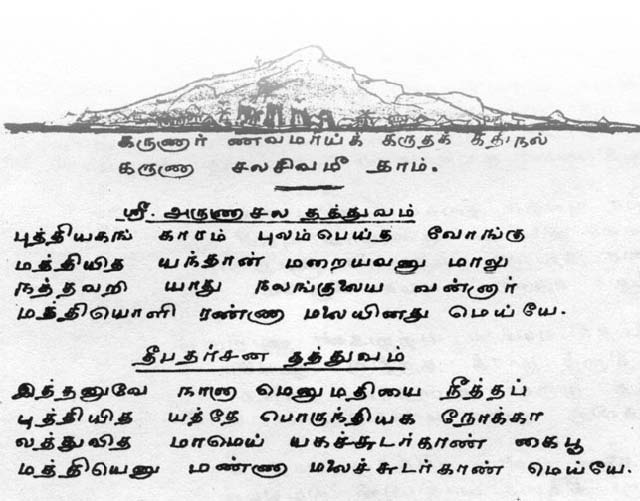 கருணார் ணவமாய்க் கருதக் கதிநல்
கருணா சலசிவமீ தாம்.
ஸ்ரீ. அருணாசல தத்துவம்
புத்தியகங் காரம் புலம்பெய்த வோங்கு
மத்தியித யந்தான் மறையவனு மாலு
நத்தவறி யாது நலங்குலைய வன்னார்
மத்தியொளி ரண்ணா மலையினது மெய்யே.
தீபதர்சன தத்துவம்
இத்தனுவே நானா மெனுமதியை நீத்தப்
புத்தியித யத்தே பொருந்தியக நோக்கா
லத்துவித மாமெய் யகச்சுடர்காண் கைபூ
மத்தியெனு மண்ணா மலைச்சுடர்காண் மெய்யே.